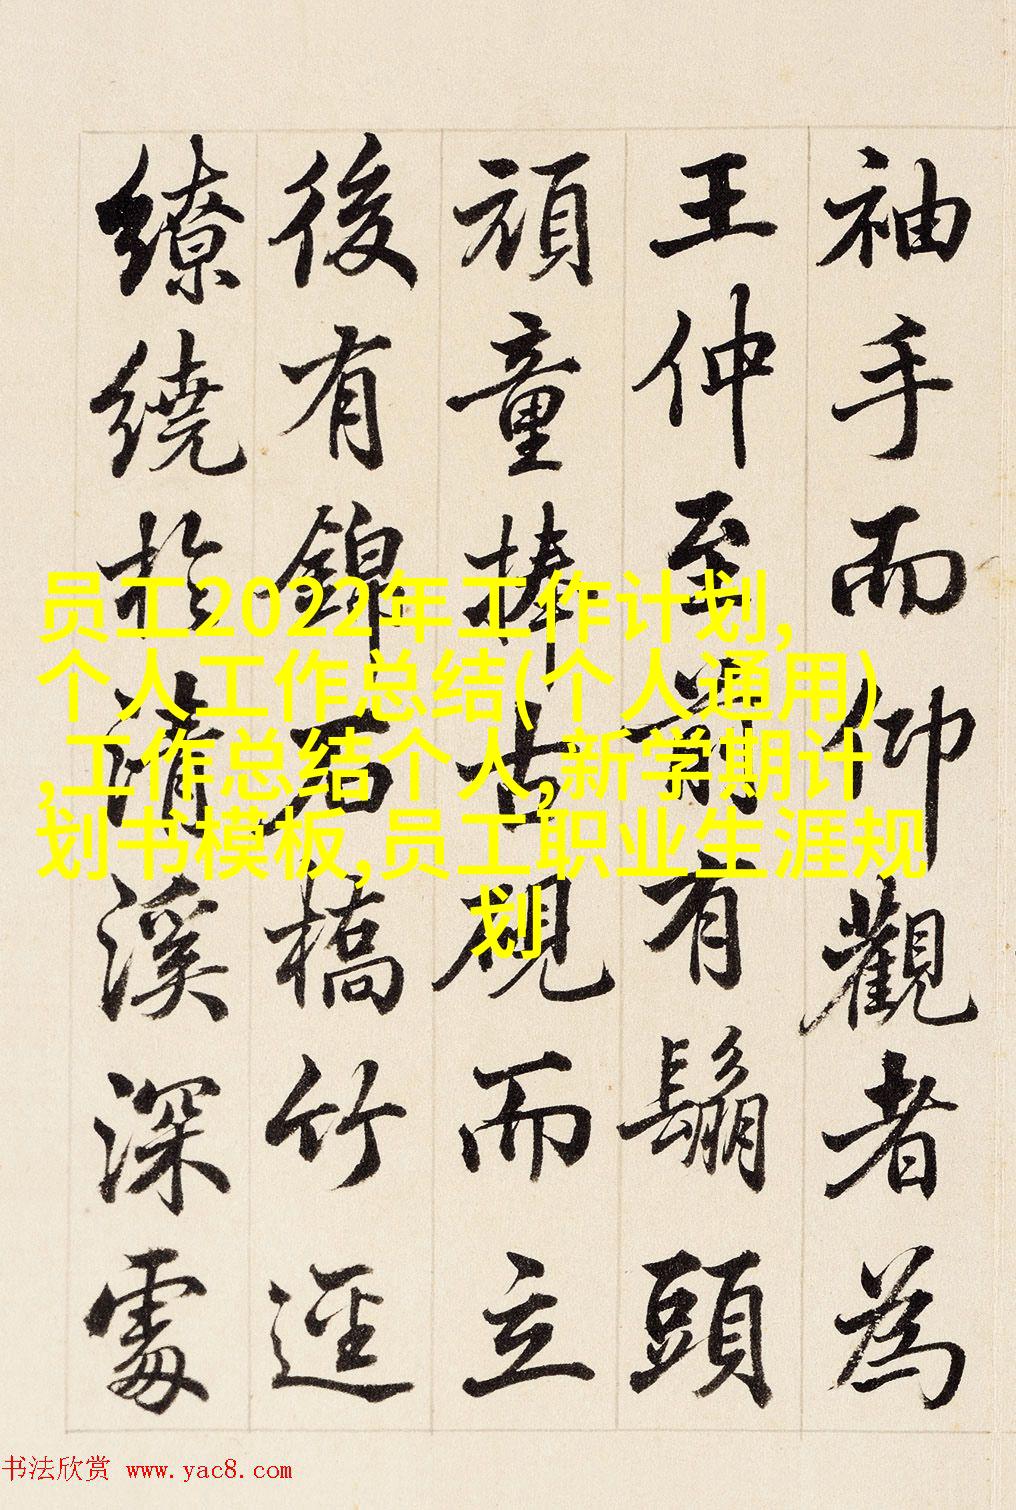 袖手而仰觀者為
王仲至前有鬅頭
頑童捧古硯而立
後有錦石橋竹逕
繚繞於清溪深處
员工2022年工作计划,
个人工作总结(个人通用)
,工作总结个人,新学期计
划书模板,员工职业生涯规
划
书法欣赏 www.yac8.com